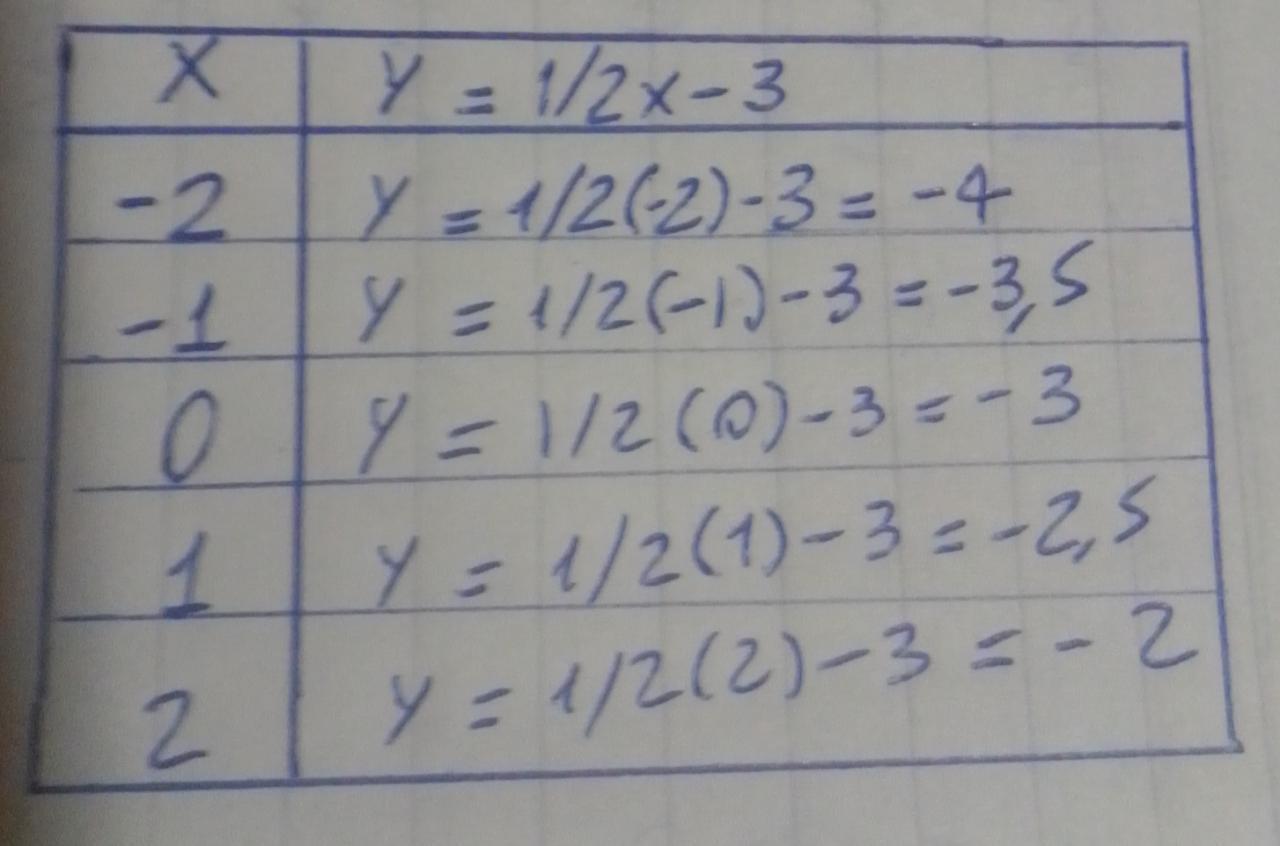 X Y = 1/2x - 3
-2 Y = 1/2(-2) - 3 = -4
-1 Y = 1/2(-1) - 3 = -3,5
0 Y = 1/2(0) - 3 = -3
1 Y = 1/2(1) - 3 = -2,5
2 Y = 1/2(2) - 3 = -2